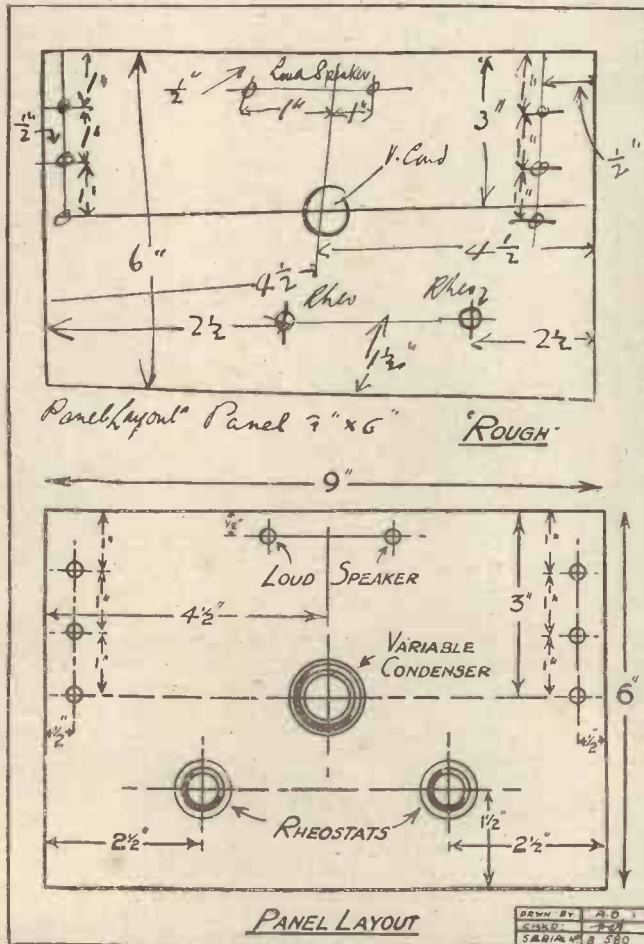 ½" Loud Speaker
1" 1" 1" 1"
½" 1" 3" 1" ½"
1" V. Cond 1"
6" 4½ 4½
Rheo Rheo 2
2½ 1½" 2½
Panel Layout" Panel 9" x 6" "ROUGH"
9"
½"
1" LOUD SPEAKER 1"
1" 4½" 3" 1"
1" VARIABLE CONDENSER 1" 6"
½" ½"
RHEOSTATS 1½"
2½" 2½"
PANEL LAYOUT
DRWN BY A.D.
CHKD:
SERIAL Nº